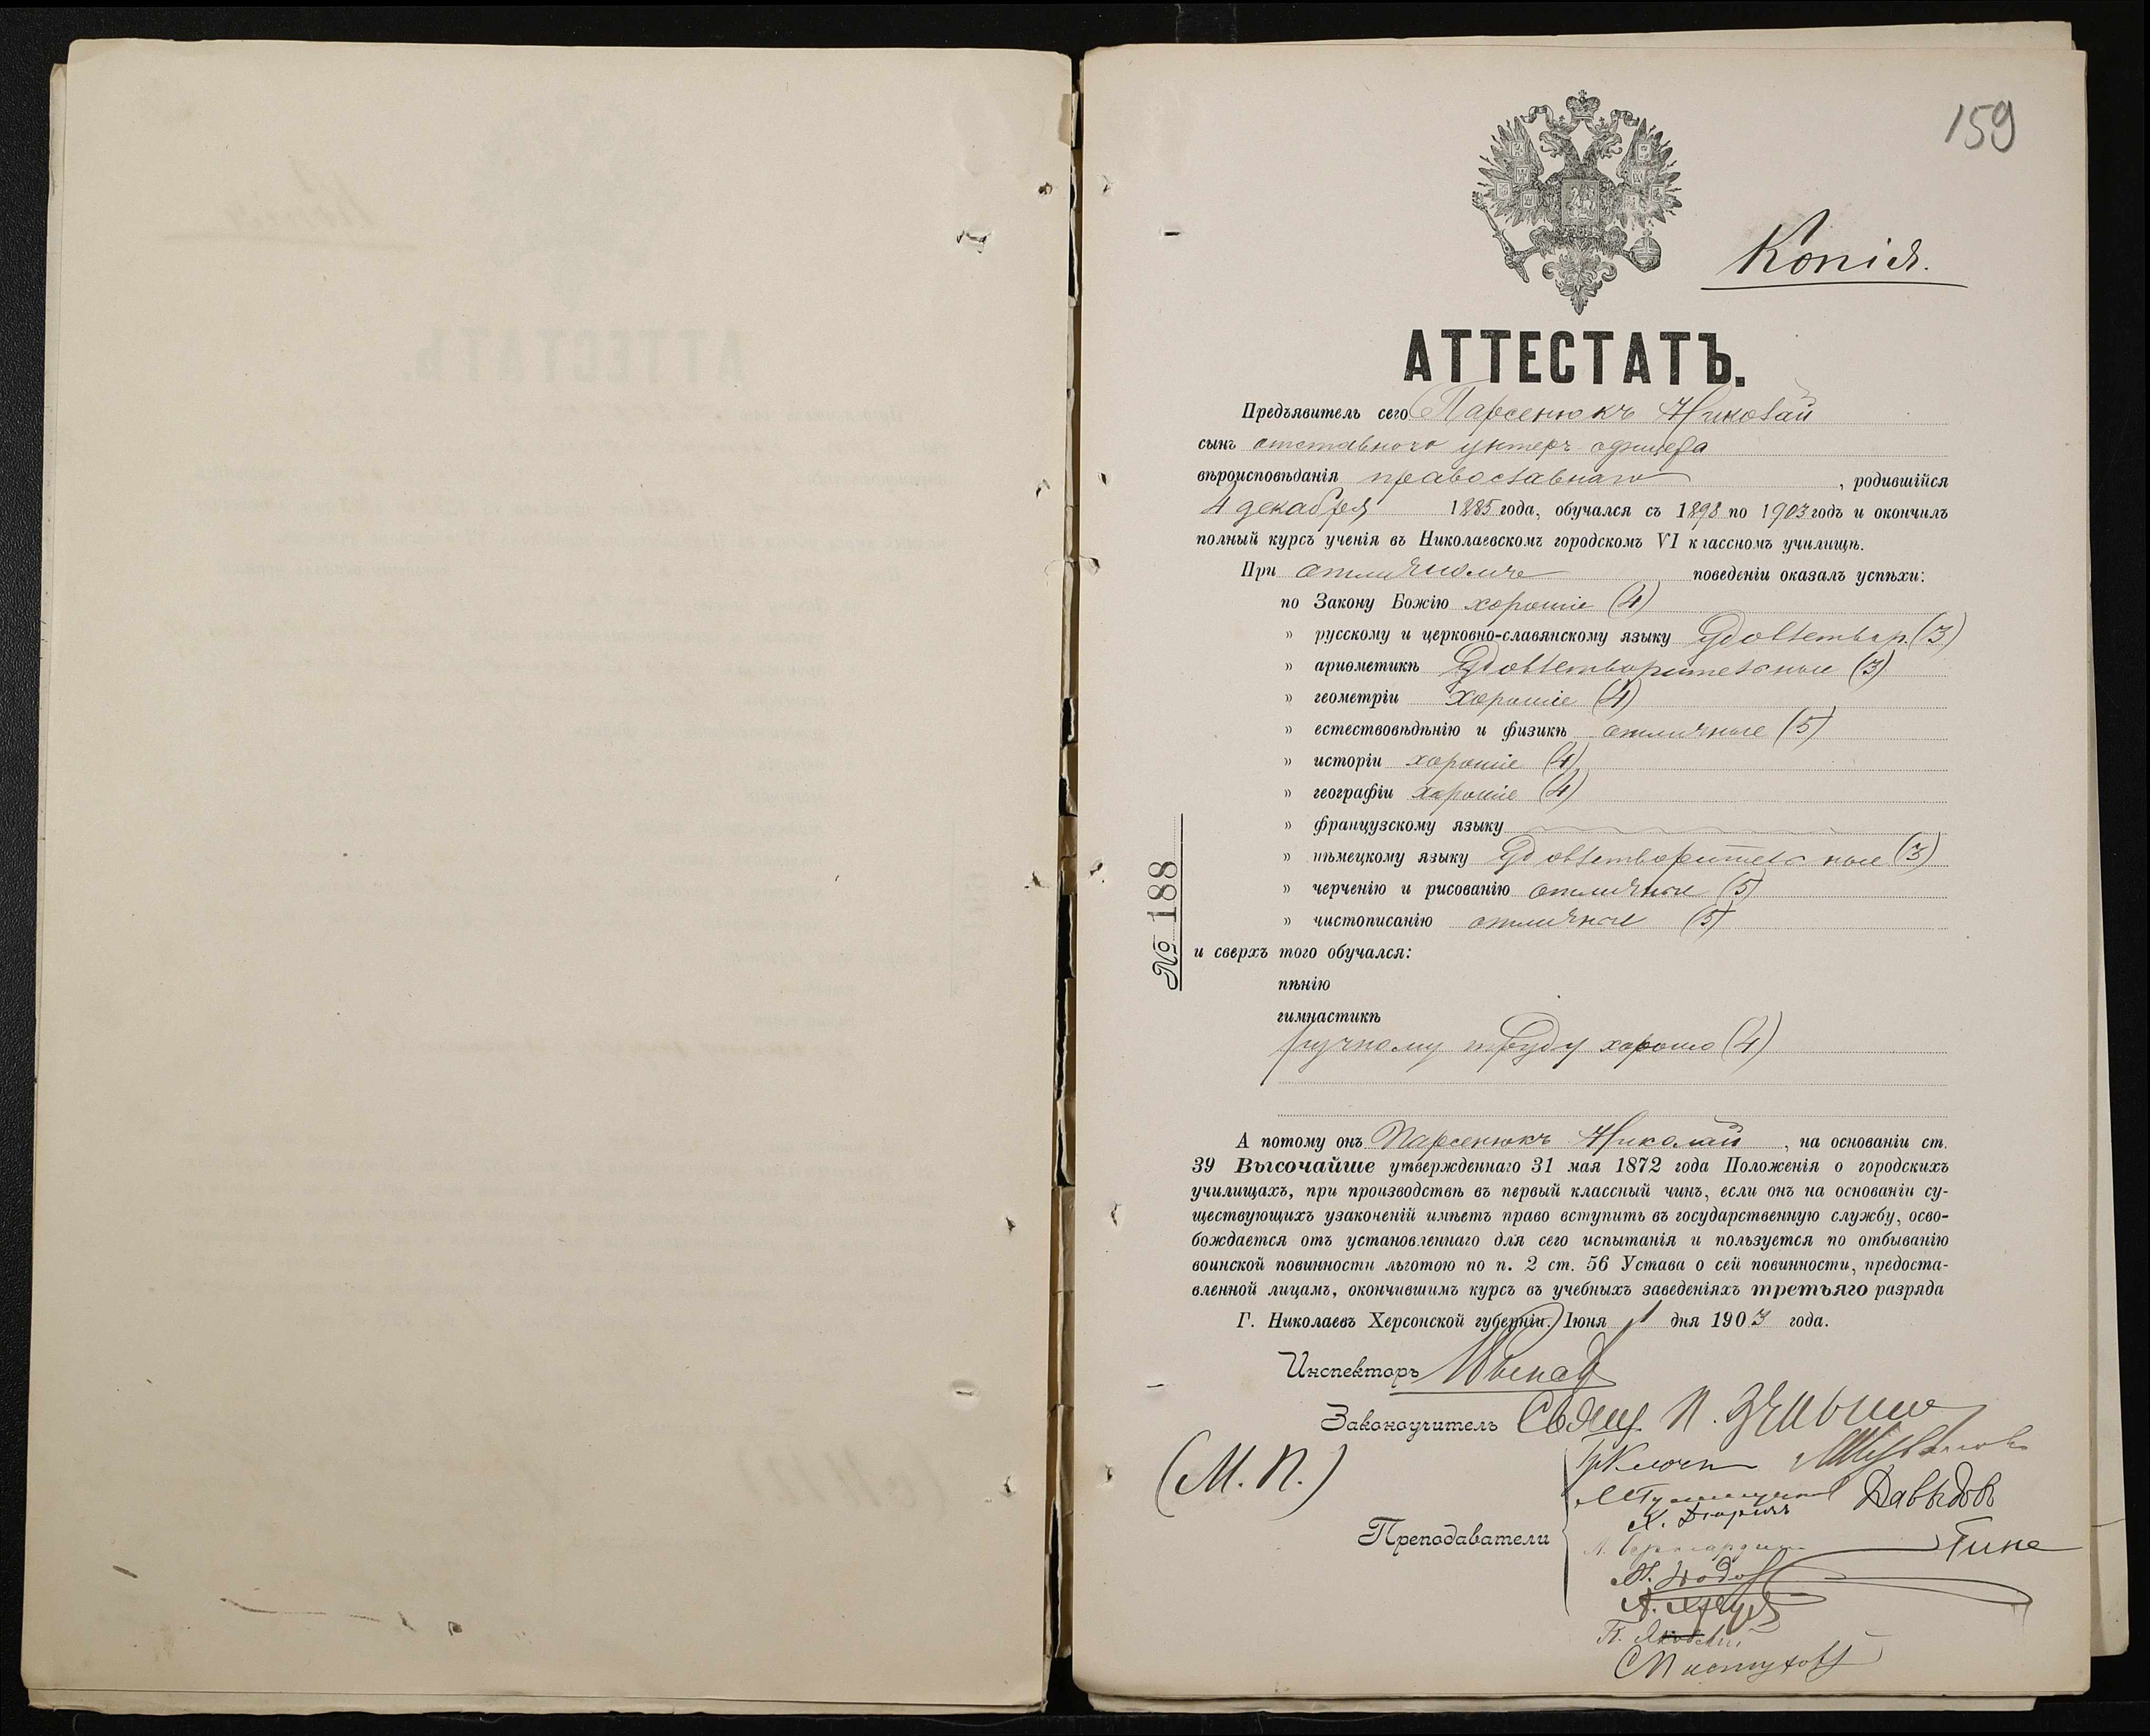 159
Копія.
АТТЕСТАТЪ.
Предъявитель сего Парсенюкъ Николай
сынъ отставного унтеръ-офицера
вѣроисповѣданія православнаго, родившійся
4 декабря 1885 года, обучался съ 1898 по 1903 годъ и окончилъ
полный курсъ ученія въ Николаевскомъ городскомъ VI классномъ училищѣ.
При отличномъ поведеніи оказалъ успѣхи:
по Закону Божію хорошіе (4)
» русскому и церковно-славянскому языку удовлетвор. (3)
» ариѳметикѣ удовлетворительные (3)
» геометріи хорошіе (4)
» естествовѣдѣнію и физикѣ отличные (5)
» исторіи хорошіе (4)
» географіи хорошіе (4)
» французскому языку
» нѣмецкому языку удовлетворительные (3)
» черченію и рисованію отличные (5)
» чистописанію отличные (5)
№ 188
и сверхъ того обучался:
пѣнію
гимнастикѣ
ручному труду хорошо (4)
А потому онъ Парсенюкъ Николай, на основаніи ст.
39 Высочайше утвержденнаго 31 мая 1872 года Положенія о городскихъ
училищахъ, при производствѣ въ первый классный чинъ, если онъ на основаніи су-
ществующихъ узаконеній имѣетъ право вступить въ государственную службу, осво-
бождается отъ установленнаго для сего испытанія и пользуется по отбыванію
воинской повинности льготою по п. 2 ст. 56 Устава о сей повинности, предоста-
вленной лицамъ, окончившимъ курсъ въ учебныхъ заведеніяхъ третьяго разряда
Г. Николаевъ Херсонской губерніи. Іюня 1 дня 1903 года.
Инспекторъ
Законоучитель Свящ. П.
(М. П.)
Давыдовъ
Преподаватели
Гине